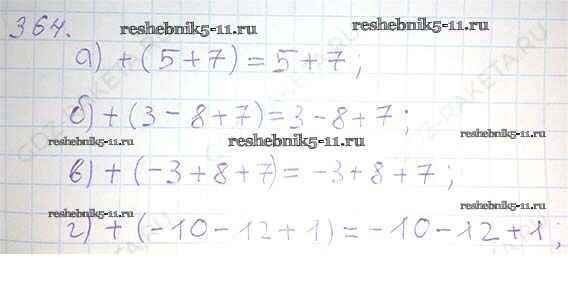 364.
reshebnik5-11.ru
reshebnik5-11.ru
а) + (5 + 7) = 5 + 7;
б) + (3 - 8 + 7) = 3 - 8 + 7;
reshebnik5-11.ru
reshebnik5-11.ru
reshebnik5-11.ru
в) + (-3 + 8 + 7) = -3 + 8 + 7;
reshebnik5-11.ru
reshebnik5-11.ru
г) + (-10 - 12 + 1) = -10 - 12 + 1;